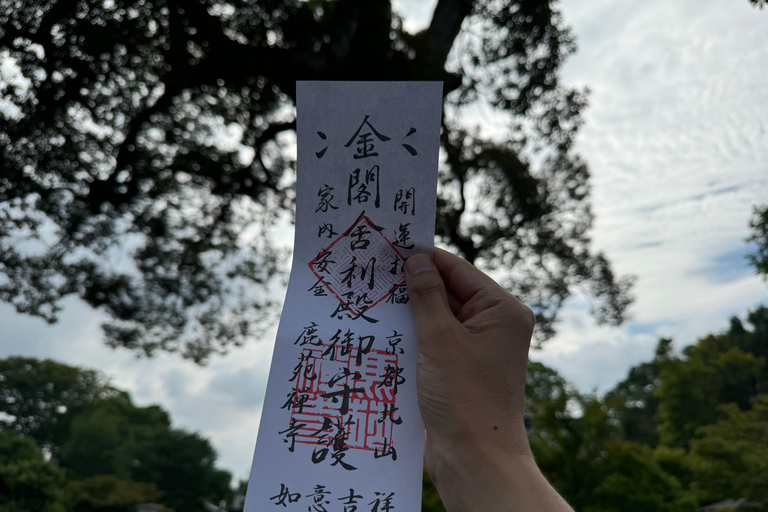 金閣舎利殿御守護
開運招福
京都北山
家内安全
鹿苑禅寺
如意吉祥